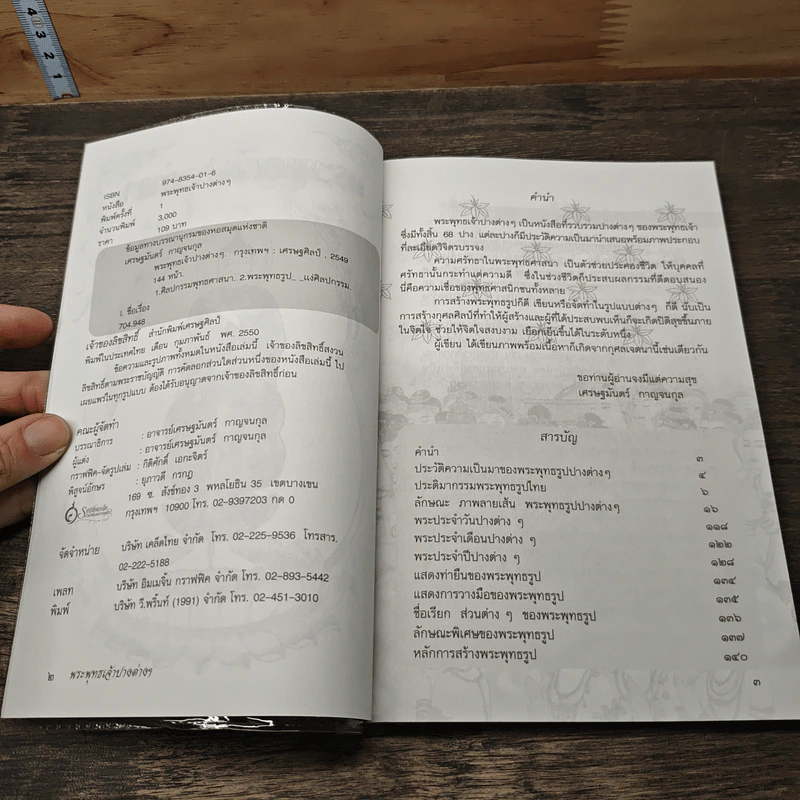 ISBN 974-8354-01-6
หนังสือ พระพุทธเจ้าปางต่างๆ
พิมพ์ครั้งที่ 1
จำนวนพิมพ์ 3,000
ราคา 109 บาท
ข้อมูลทางบรรณานุกรมของหอสมุดแห่งชาติ
เศรษฐมันตร์ กาญจนกุล
พระพุทธเจ้าปางต่างๆ. กรุงเทพฯ : เศรษฐศิลป์ , 2549
144 หน้า.
1.ศิลปกรรมพุทธศาสนา. 2.พระพุทธรูป_ _แง่ศิลปกรรม.
I. ชื่อเรื่อง
704.948
เจ้าของลิขสิทธิ์ สำนักพิมพ์เศรษฐศิลป์
พิมพ์ในประเทศไทย เดือน กุมภาพันธ์ พศ. 2550
ข้อความและรูปภาพทั้งหมดในหนังสือเล่มนี้ เจ้าของลิขสิทธิ์สงวน
ลิขสิทธิ์ตามพระราชบัญญัติ การคัดลอกส่วนใดส่วนหนึ่งของหนังสือเล่มนี้ ไป
เผยแพร่ในทุกรูปแบบ ต้องได้รับอนุญาตจากเจ้าของลิขสิทธิ์ก่อน
คณะผู้จัดทำ
บรรณาธิการ : อาจารย์เศรษฐมันตร์ กาญจนกุล
ผู้แต่ง : อาจารย์เศรษฐมันตร์ กาญจนกุล
กราฟฟิค-จัดรูปเล่ม : กิติศักดิ์ เอกะจิตร์
พิสูจน์อักษร : ยุภาวดี กรกฎ
169 ซ. สังข์ทอง 3 พหลโยธิน 35 เขตบางเขน
กรุงเทพฯ 10900 โทร. 02-9397203 กด 0
จัดจำหน่าย บริษัท เคล็ดไทย จำกัด โทร. 02-225-9536 โทรสาร.
02-222-5188
เพลท บริษัท อิมเมจิ้น กราฟฟิค จำกัด โทร. 02-893-5442
พิมพ์ บริษัท วี.พริ้นท์ (1991) จำกัด โทร. 02-451-3010
๒ พระพุทธเจ้าปางต่างๆ
คำนำ
พระพุทธเจ้าปางต่างๆ เป็นหนังสือที่รวบรวมปางต่างๆ ของพระพุทธเจ้า
ซึ่งมีทั้งสิ้น 68 ปาง แต่ละปางก็มีประวัติความเป็นมานำเสนอพร้อมภาพประกอบ
ที่ละเอียดวิจิตรบรรจง
ความศรัทธาในพระพุทธศาสนา เป็นตัวช่วยประคองชีวิต ให้บุคคลที่
ศรัทธานั้นกระทำแต่ความดี ซึ่งในช่วงชีวิตก็ประสบผลกรรมที่ดีตอบสนอง
นี่คือความเชื่อของพุทธศาสนิกชนทั้งหลาย
การสร้างพระพุทธรูปก็ดี เขียนหรือจัดทำในรูปแบบต่างๆ ก็ดี นับเป็น
การสร้างกุศลศิลป์ที่ทำให้ผู้สร้างและผู้ที่ได้ประสบพบเห็นก็จะเกิดปิติสุขขึ้นภาย
ในจิตใจ ช่วยให้จิตใจสงบงาม เยือกเย็นขึ้นได้ในระดับหนึ่ง
ผู้เขียน ได้เขียนภาพพร้อมเนื้อหาก็เกิดจากกุศลเจตนานี้เช่นเดียวกัน
ขอท่านผู้อ่านจงมีแต่ความสุข
เศรษฐมันตร์ กาญจนกุล
สารบัญ
คำนำ ๓
ประวัติความเป็นมาของพระพุทธรูปปางต่างๆ ๔
ประติมากรรมพระพุทธรูปไทย ๖
ลักษณะ ภาพลายเส้น พระพุทธรูปปางต่างๆ ๑๖
พระประจำวันปางต่าง ๆ ๑๑๘
พระประจำเดือนปางต่าง ๆ ๑๒๒
พระประจำปีปางต่าง ๆ ๑๒๘
แสดงท่ายืนของพระพุทธรูป ๑๓๔
แสดงการวางมือของพระพุทธรูป ๑๓๕
ชื่อเรียก ส่วนต่าง ๆ ของพระพุทธรูป ๑๓๖
ลักษณะพิเศษของพระพุทธรูป ๑๓๗
หลักการสร้างพระพุทธรูป ๑๔๐
๓